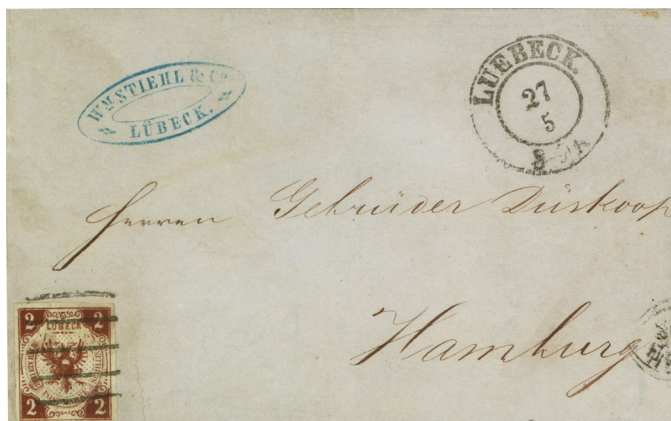 WM STIEHL & Co
LÜBECK.
LUEBECK.
27
5
Herren Gebrüder Düskoop
Hamburg
2 2
LÜBECK
2 2